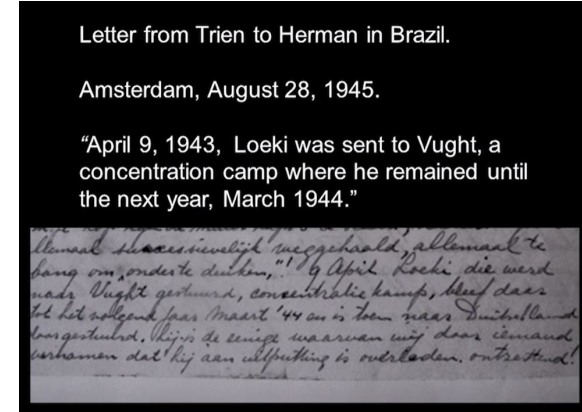 Letter from Trien to Herman in Brazil.
Amsterdam, August 28, 1945.
“April 9, 1943, Loeki was sent to Vught, a
concentration camp where he remained until
the next year, March 1944.”
allemaal successievelijk weggehaald, allemaal te
bang om, onder te duiken, 9 April Loeki die werd
naar Vught gestuurd, concentratie kamp, bleef daar
tot het volgend jaar Maart '44 en is toen naar Duitschland
doorgestuurd. Hij is de eenige waarvan wij door iemand
vernamen dat hij aan uitputting is overleden. ontzettend!